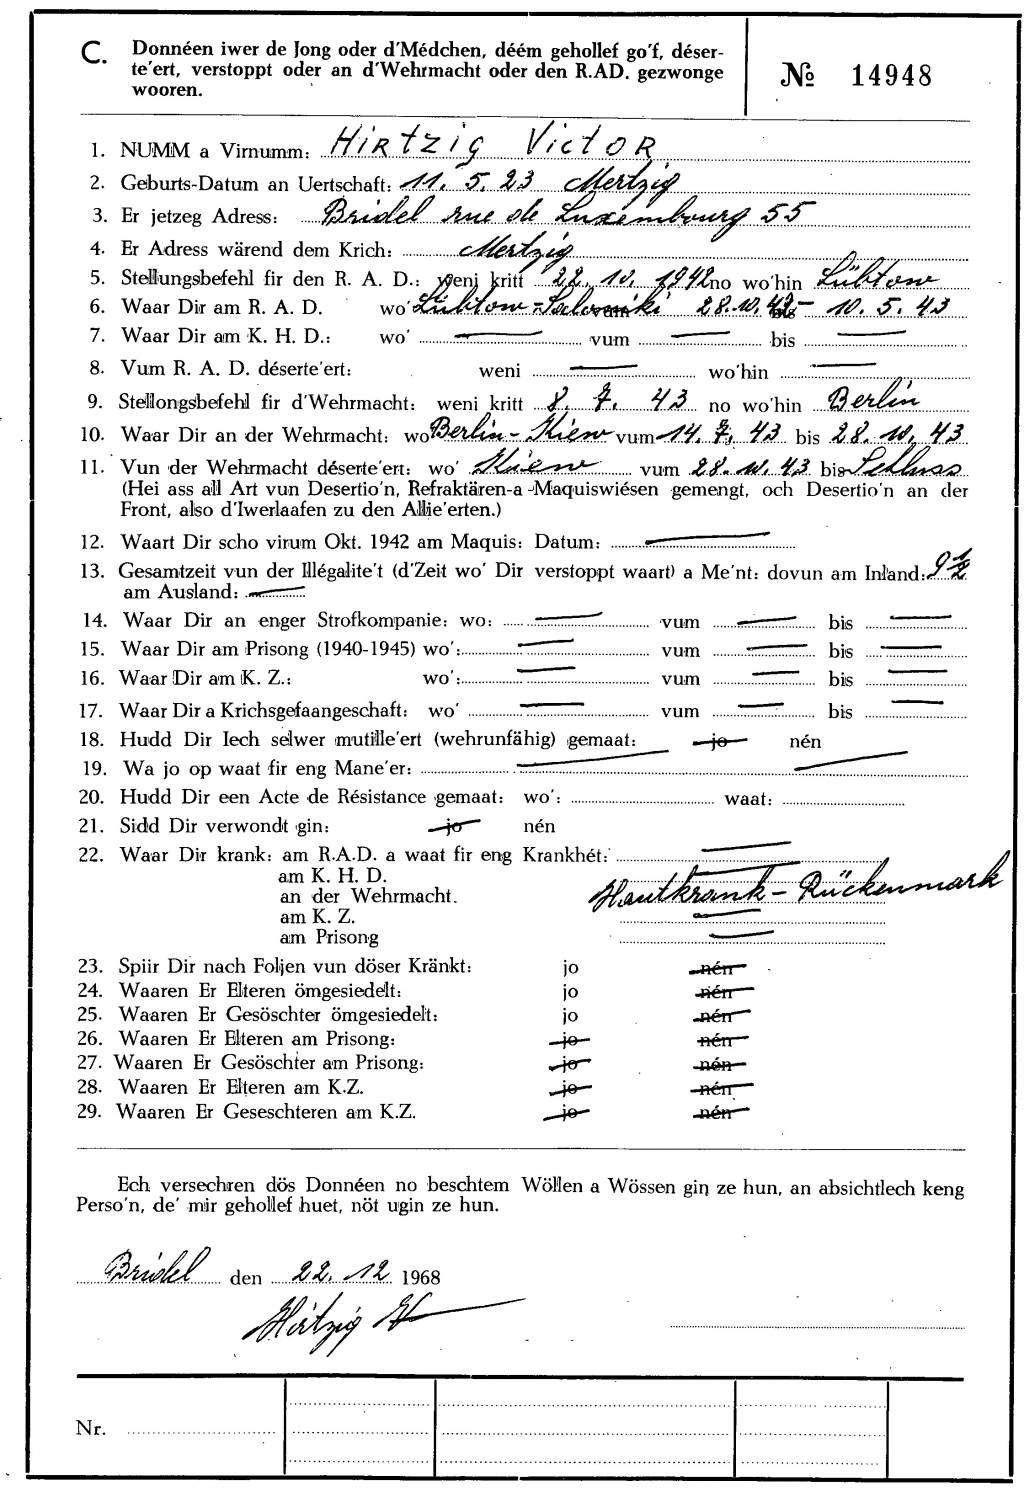 C. Donnéen iwer de Jong oder d'Médchen, déém gehollef go'f, déser-
te'ert, verstoppt oder an d'Wehrmacht oder den R.AD. gezwonge
wooren.
№ 14948
1. NUMM a Virnumm: Hirtzig Victor
2. Geburts-Datum an Uertschaft: 11. 5. 23 Mertzig
3. Er jetzeg Adress: Bridel rue de Luxembourg 55
4. Er Adress wärend dem Krich: Mertzig
5. Stellungsbefehl fir den R. A. D.: weni kritt 22. 10. 1942 no wo'hin Lübtow
6. Waar Dir am R. A. D. wo' Lübtow - Saloniki 28. 10. 42 bis - 10. 5. 43
7. Waar Dir am K. H. D.: wo' — vum — bis —
8. Vum R. A. D. déserte'ert: weni — wo'hin —
9. Stellongsbefehl fir d'Wehrmacht: weni kritt 8. 7. 43 no wo'hin Berlin
10. Waar Dir an der Wehrmacht: wo Berlin - Kiew vum 14. 7. 43 bis 28. 10. 43
11. Vun der Wehrmacht déserte'ert: wo' Kiew vum 28. 10. 43 bis Schluss
(Hei ass all Art vun Desertio'n, Refraktären-a -Maquiswiésen gemengt, och Desertio'n an der
Front, also d'Iwerlaafen zu den Allie'erten.)
12. Waart Dir scho virum Okt. 1942 am Maquis: Datum: —
13. Gesamtzeit vun der Illégalite't (d'Zeit wo' Dir verstoppt waart) a Me'nt: dovun am Inland: 9 1/2
am Ausland: —
14. Waar Dir an enger Strofkompanie: wo: — vum — bis —
15. Waar Dir am Prisong (1940-1945) wo': — vum — bis —
16. Waar Dir am K. Z.: wo': — vum — bis —
17. Waar Dir a Krichsgefaangeschaft: wo' — vum — bis —
18. Hudd Dir Iech selwer mutille'ert (wehrunfähig) gemaat: jo nén
19. Wa jo op waat fir eng Mane'er: — —
20. Hudd Dir een Acte de Résistance gemaat: wo': waat:
21. Sidd Dir verwondt gin: jo nén
22. Waar Dir krank: am R.A.D. a waat fir eng Krankhét: —
am K. H. D. —
an der Wehrmacht. Hautkrank - Rückenmark
am K. Z. —
am Prisong —
23. Spiir Dir nach Foljen vun döser Kränkt: jo nén
24. Waaren Er Elteren ömgesiedelt: jo nén
25. Waaren Er Gesöschter ömgesiedelt: jo nén
26. Waaren Er Elteren am Prisong: jo nén
27. Waaren Er Gesöschter am Prisong: jo nén
28. Waaren Er Elteren am K.Z. jo nén
29. Waaren Er Geseschteren am K.Z. jo nén
Ech versechren dös Donnéen no beschtem Wöllen a Wössen gin ze hun, an absichtlech keng
Perso'n, de' mir gehollef huet, nöt ugin ze hun.
Bridel den 22. 12 1968
Hirtzig V
Nr.